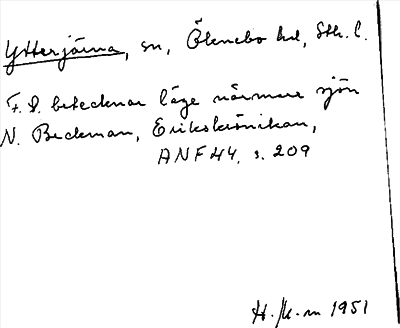 Ytterjärna, sn, Öknebo hd, Sth. l.
F. l. betecknar läge närmare sjön
N. Beckman, Erikskrönikan,
ANF 44, s. 209
1951